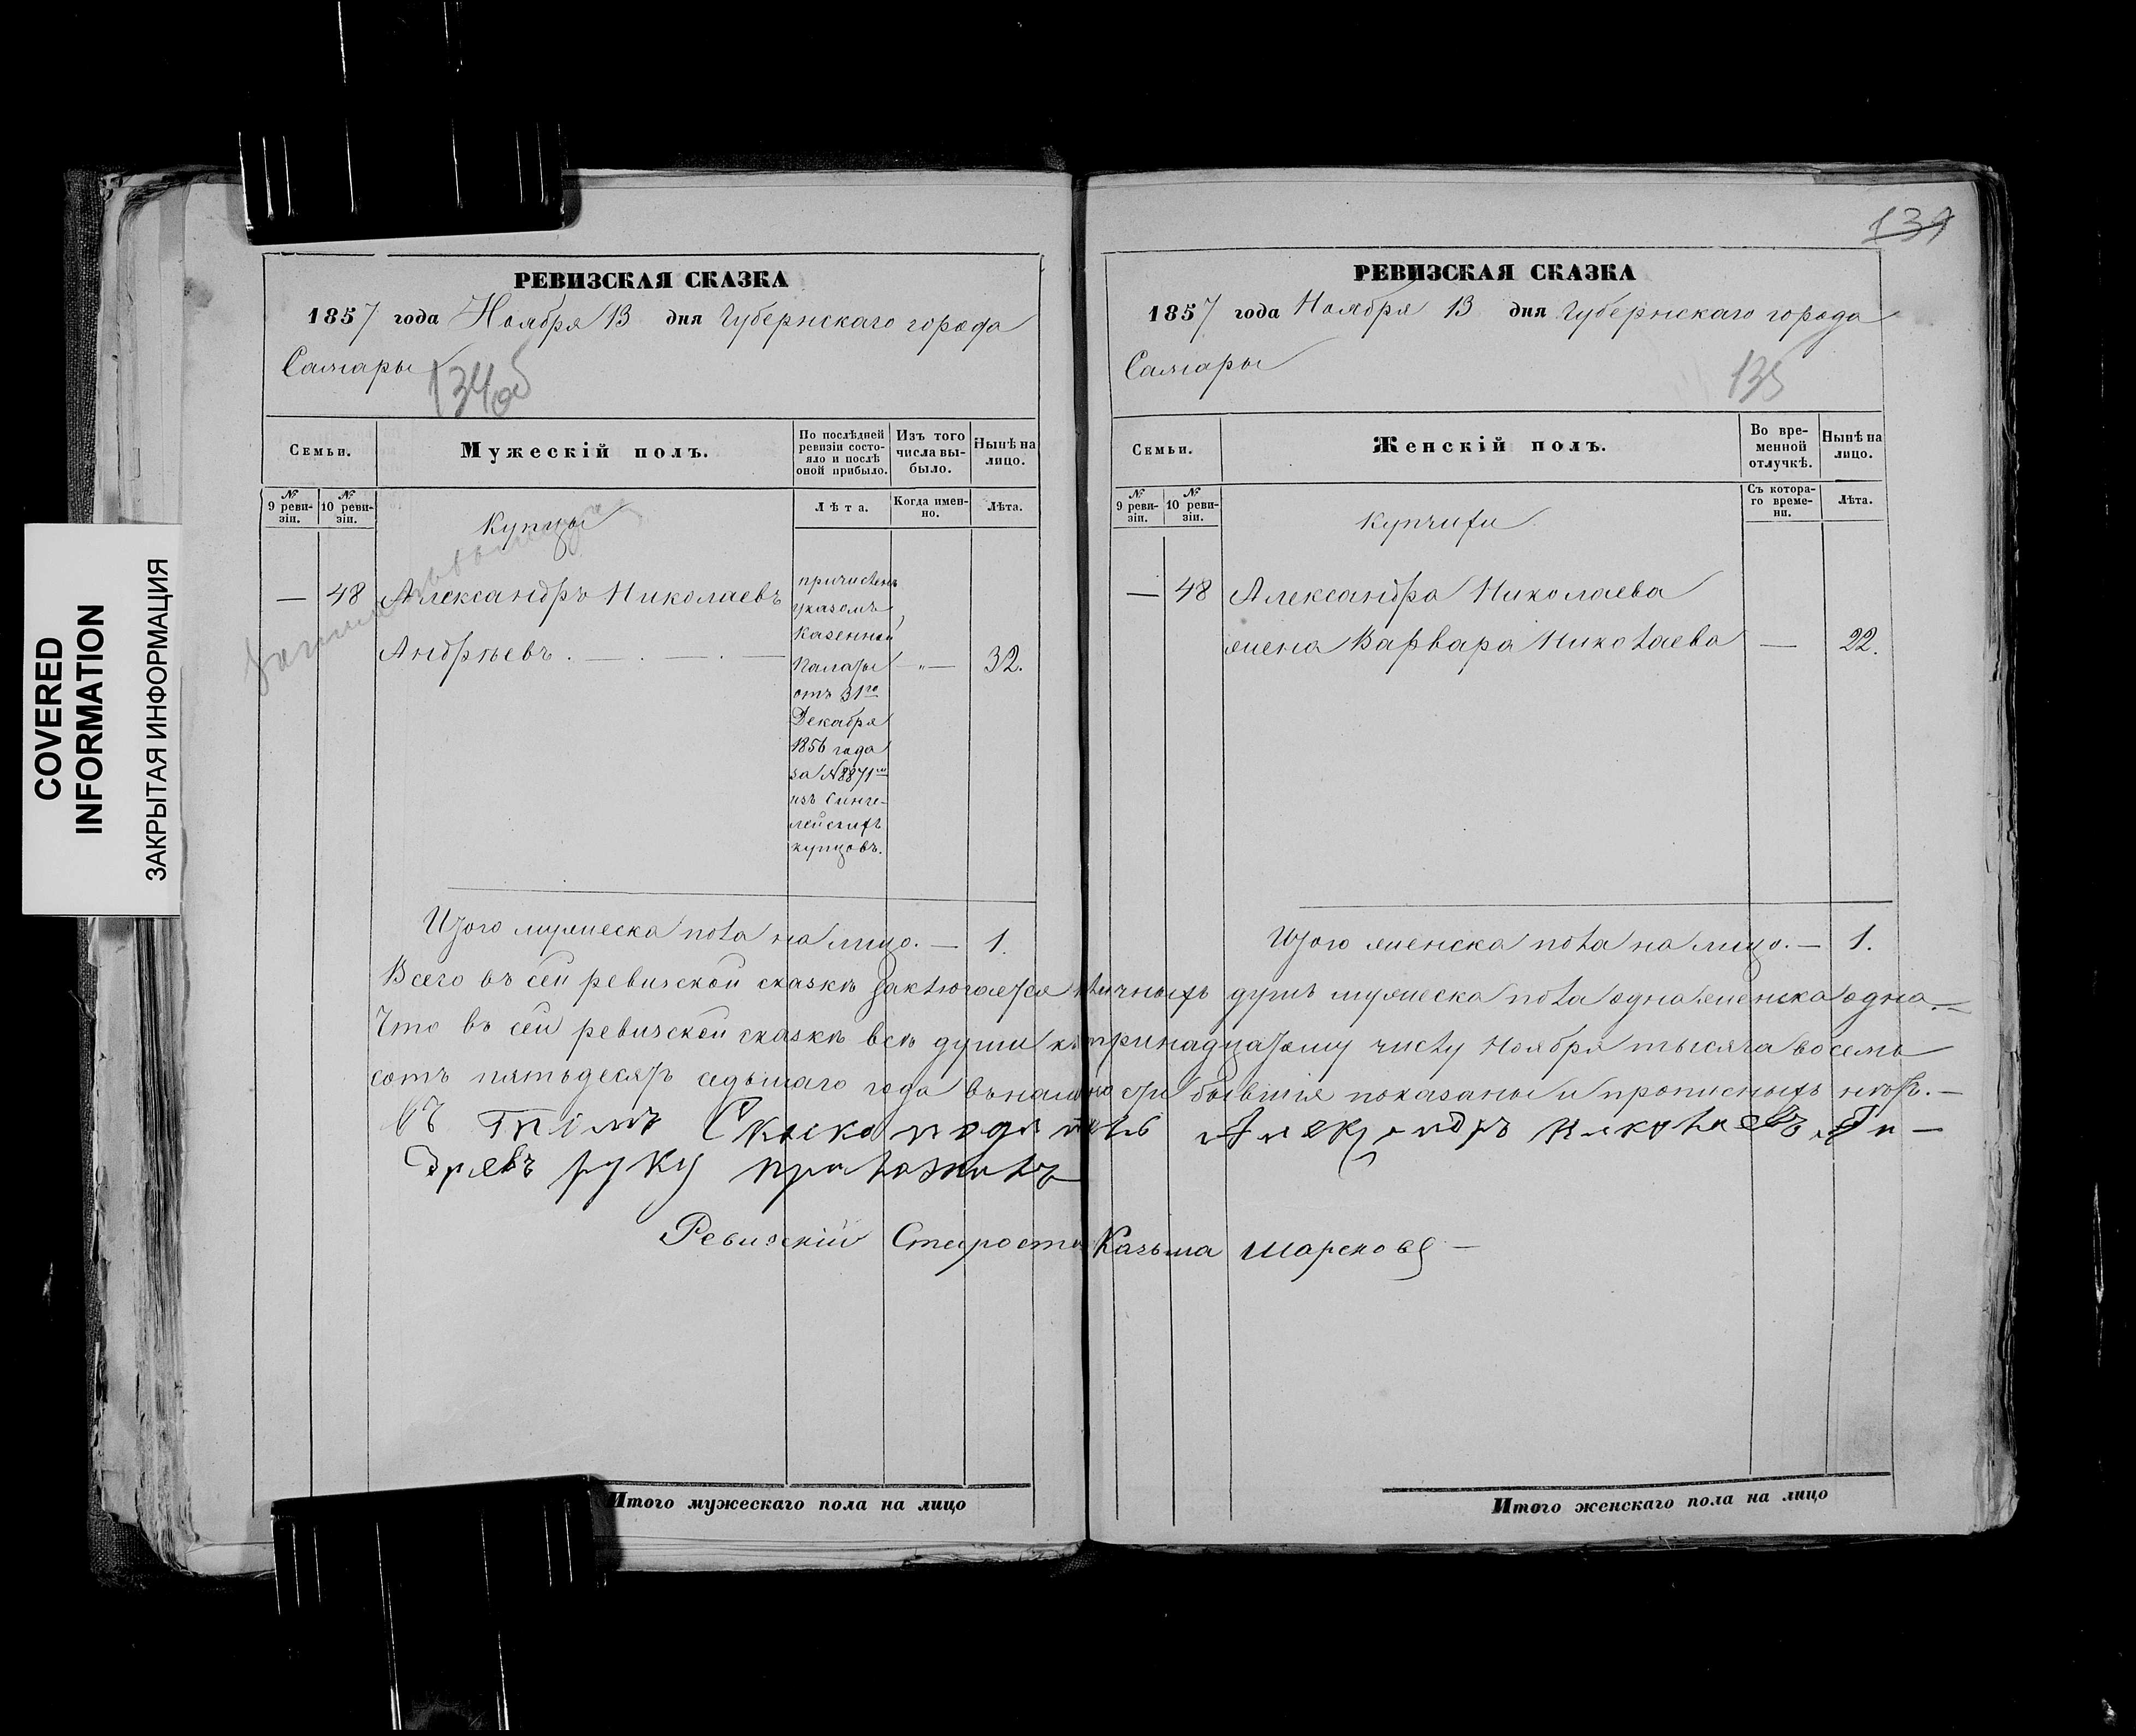 COVERED
INFORMATION
ЗАКРЫТАЯ ИНФОРМАЦИЯ
РЕВИЗСКАЯ СКАЗКА
1857 года Ноября 13 дня Губернскаго города
Самары
134об
Семьи.
Мужескій полъ.
По послѣдней ревизіи состояло и послѣ оной прибыло.
Изъ того числа выбыло.
Нынѣ на лицо.
№ 9 ревизіи.
№ 10 ревизіи.
Лѣта.
Когда именно.
Лѣта.
Купцы
— 48 Александръ Николаевъ
Андрѣевъ . — . — . — — „ — 32.
причисленъ
указомъ
Казенной
Палаты
отъ 31го
Декабря
1856 года
за № 8871м
изъ Синги-
лейскихъ
купцовъ.
Итого мужеска пола на лицо. — 1.
РЕВИЗСКАЯ СКАЗКА
1857 года Ноября 13 дня Губернскаго города
Самары
135
Семьи.
Женскій полъ.
Во временной отлучкѣ.
Нынѣ на лицо.
№ 9 ревизіи.
№ 10 ревизіи.
Съ котораго времени.
Лѣта.
Купчихи
— 48 Александра Николаева
жена Варвара Николаева — 22.
Итого женска пола на лицо. — 1.
Всего въ сей ревизской сказкѣ заключается наличныхъ душъ мужеска пола одна женска одна. —
Что въ сей ревизской сказкѣ всѣ души къ тринадцатому числу Ноября тысяча восемь
сотъ пятьдесятъ седьмаго года въ наличности бывшія показаны и прописныхъ нѣтъ. —
Александръ Николаевъ Ан-
дреевъ руку приложилъ
Ревизскій Староста Казьма Шарековъ —
Итого мужескаго пола на лицо
Итого женскаго пола на лицо